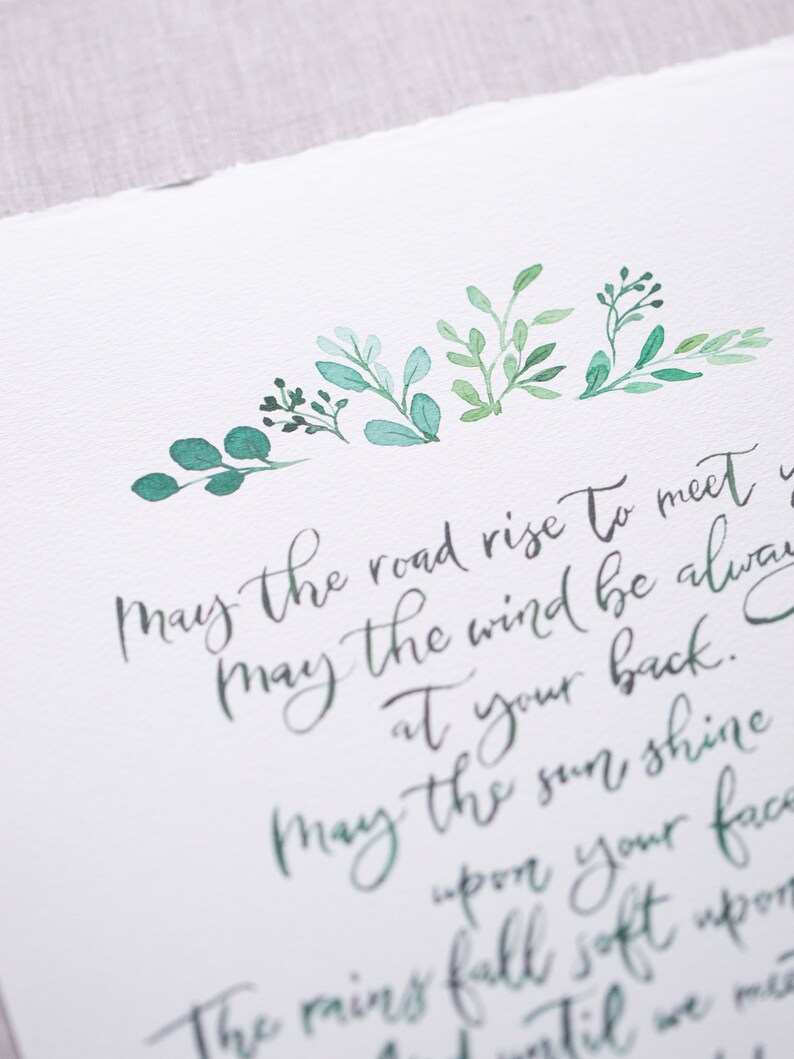 May the road rise to meet y
May the wind be alway
at your back.
May the sun shine
upon your face
The rains fall soft upon
And until we meet